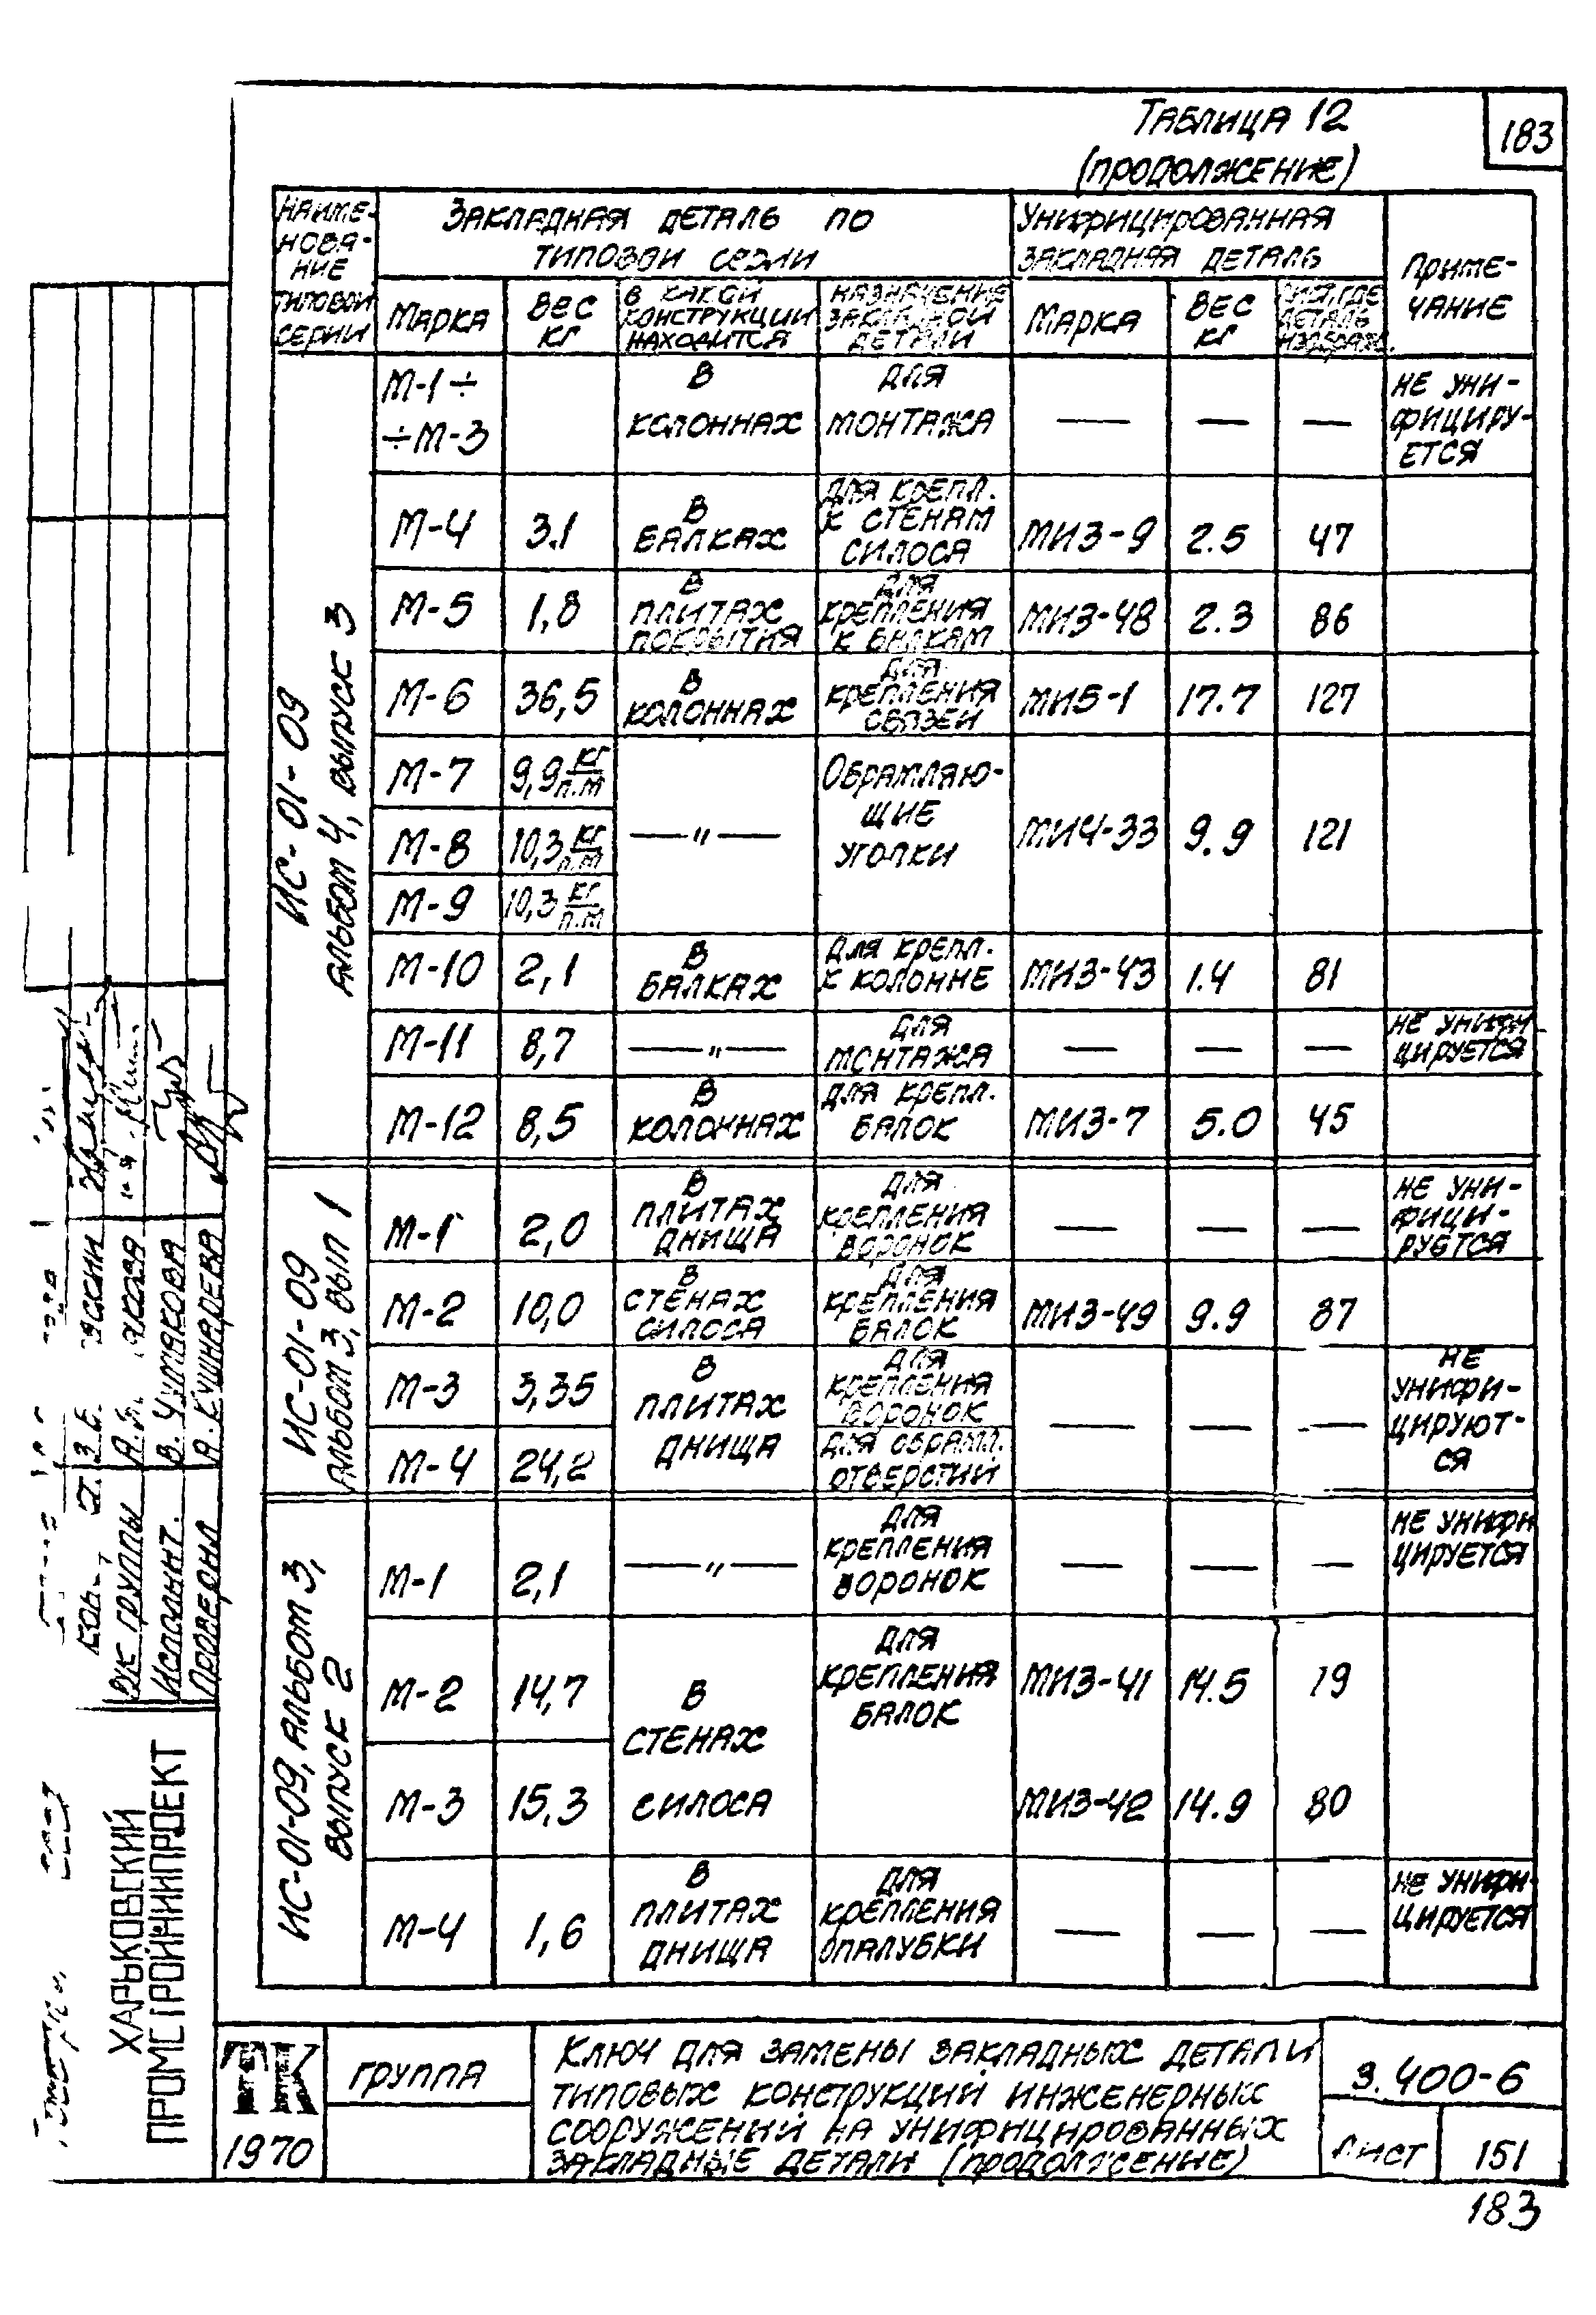 Таблица 12
183
(продолжение)
Наиме-
нова-
ние
типовой
серии
Закладная деталь по
типовой серии
Унифицированная
закладная деталь
Приме-
чание
Марка
Вес
кг
в какой
конструкции
находится
назначение
закладной
детали
Марка
Вес
кг
где
деталь
ИС-01-09
альбом 4, выпуск 3
М-1÷
÷М-3
в
колоннах
для
монтажа
—
—
—
не уни-
фициру-
ется
М-4
3.1
в
балках
для крепл.
к стенам
силоса
МИ3-9
2.5
47
М-5
1,8
в
плитах
покрытия
для
крепления
к балкам
МИ3-48
2.3
86
М-6
36,5
в
колоннах
для
крепления
связей
МИ5-1
17.7
127
М-7
9,9 кг/п.м
М-8
10,3 кг/п.м
М-9
10,3 кг/п.м
—"—
Обрамляю-
щие
уголки
МИ4-33
9.9
121
М-10
2,1
в
балках
для крепл.
к колонне
МИ3-43
1.4
81
М-11
8,7
—"—
для
монтажа
—
—
—
не унифи
цируется
М-12
8,5
в
колоннах
для крепл.
балок
МИ3-7
5.0
45
ИС-01-09
альбом 3, вып 1
М-1
2,0
в
плитах
днища
для
крепления
воронок
—
—
—
не уни-
фици-
руется
М-2
10,0
в
стенах
силоса
для
крепления
балок
МИ3-49
9.9
87
М-3
3,35
в
плитах
днища
для
крепления
воронок
—
—
—
не
унифи-
цируют-
ся
М-4
24,2
для обрамл.
отверстий
ИС-01-09, альбом 3,
выпуск 2
М-1
2,1
—"—
для
крепления
воронок
—
—
—
не унифи
цируется
М-2
14,7
в
стенах
силоса
для
крепления
балок
МИ3-41
14.5
79
М-3
15,3
МИ3-42
14.9
80
М-4
1,6
в
плитах
днища
для
крепления
опалубки
—
—
—
не унифи-
цируется
Рук группы
Исполнит.
В. Чумакова
Проверил
А. Кушнарева
ХАРЬКОВСКИЙ
ПРОМСТРОЙНИИПРОЕКТ
ТК
1970
группа
Ключ для замены закладных детали
типовых конструкций инженерных
сооружений на унифицированных
закладные детали (продолжение)
3.400-6
Лист
151
183